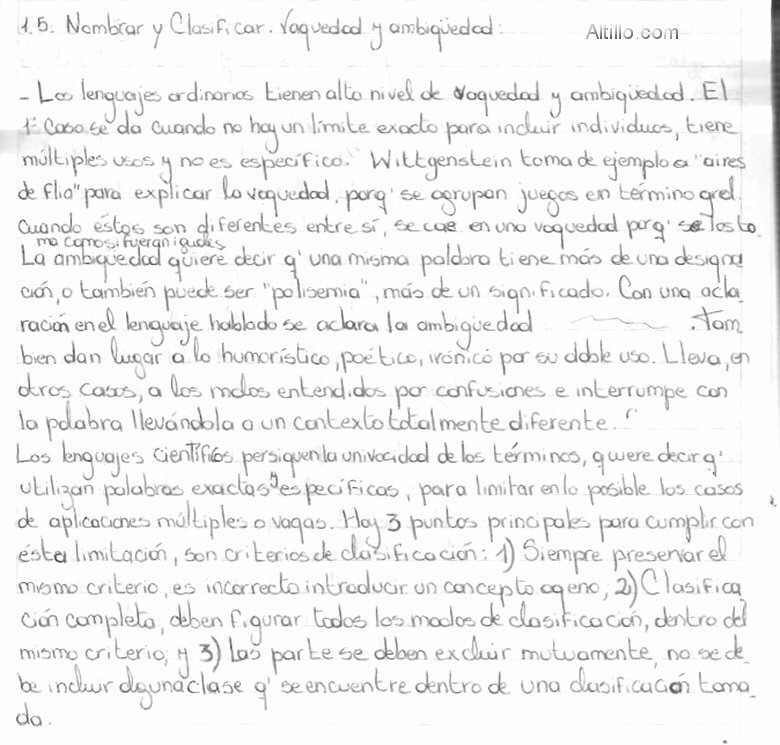 1.5. Nombrar y Clasificar. Vaguedad y ambigüedad:
Altillo.com
- Los lenguajes ordinarios tienen alto nivel de vaguedad y ambigüedad. El
1º Caso se da cuando no hay un límite exacto para incluir individuos, tiene
múltiples usos y no es específico. Wittgenstein toma de ejemplo a "aires
de flia" para explicar la vaguedad, porq' se agrupan juegos en término gral.
Cuando éstos son diferentes entre sí, se cae en una vaguedad porq' se los to
ma como si fueran iguales
La ambiguedad quiere decir q' una misma palabra tiene más de una designa
ción, o también puede ser "polisemia", más de un significado. Con una acla
ración en el lenguaje hablado se aclara la ambigüedad . Tam
bien dan lugar a lo humorístico, poético, irónico por su doble uso. Lleva, en
otros casos, a los malos entendidos por confusiones e interrumpe con
la palabra llevándola a un contexto totalmente diferente.
Los lenguajes científicos persiguen la univocidad de los términos, quiere decir q'
utilizan palabras exactas y específicas, para limitar en lo posible los casos
de aplicaciones múltiples o vagas. Hay 3 puntos principales para cumplir con
ésta limitación, son criterios de clasificación: 1) Siempre preservar el
mismo criterio, es incorrecto introducir un concepto ageno, 2) Clasifica
ción completa, deben figurar todos los modos de clasificación, dentro del
mismo criterio, y 3) Las parte se deben excluir mutuamente, no se de
be incluir alguna clase q' se encuentre dentro de una clasificación toma
da.